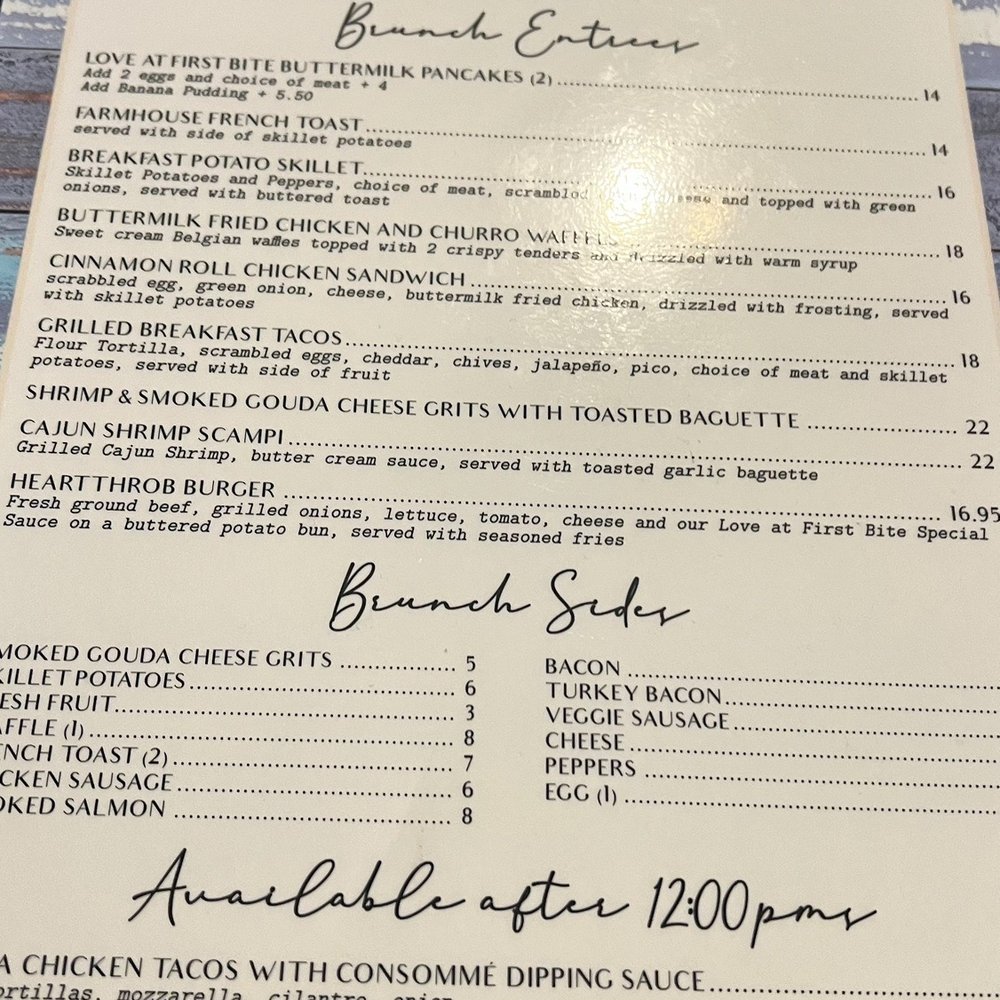 Brunch Entrees
LOVE AT FIRST BITE BUTTERMILK PANCAKES (2) 14
Add 2 eggs and choice of meat + 4
Add Banana Pudding + 5.50
FARMHOUSE FRENCH TOAST 14
served with side of skillet potatoes
BREAKFAST POTATO SKILLET 16
Skillet Potatoes and Peppers, choice of meat, scrambled cheese and topped with green
onions, served with buttered toast
BUTTERMILK FRIED CHICKEN AND CHURRO WAFFELS 18
Sweet cream Belgian waffles topped with 2 crispy tenders and drizzled with warm syrup
CINNAMON ROLL CHICKEN SANDWICH 16
scrabbled egg, green onion, cheese, buttermilk fried chicken, drizzled with frosting, served
with skillet potatoes
GRILLED BREAKFAST TACOS 18
Flour Tortilla, scrambled eggs, cheddar, chives, jalapeño, pico, choice of meat and skillet
potatoes, served with side of fruit
SHRIMP & SMOKED GOUDA CHEESE GRITS WITH TOASTED BAGUETTE 22
CAJUN SHRIMP SCAMPI 22
Grilled Cajun Shrimp, butter cream sauce, served with toasted garlic baguette
HEARTTHROB BURGER 16.95
Fresh ground beef, grilled onions, lettuce, tomato, cheese and our Love at First Bite Special
Sauce on a buttered potato bun, served with seasoned fries
Brunch Sides
MOKED GOUDA CHEESE GRITS 5
KILLET POTATOES 6
ESH FRUIT 3
AFFLE (1) 8
ENCH TOAST (2) 7
CKEN SAUSAGE 6
OKED SALMON 8
BACON
TURKEY BACON
VEGGIE SAUSAGE
CHEESE
PEPPERS
EGG (1)
Available after 12:00pms
A CHICKEN TACOS WITH CONSOMMÉ DIPPING SAUCE
ortillas, mozzarella, cilantro, onion